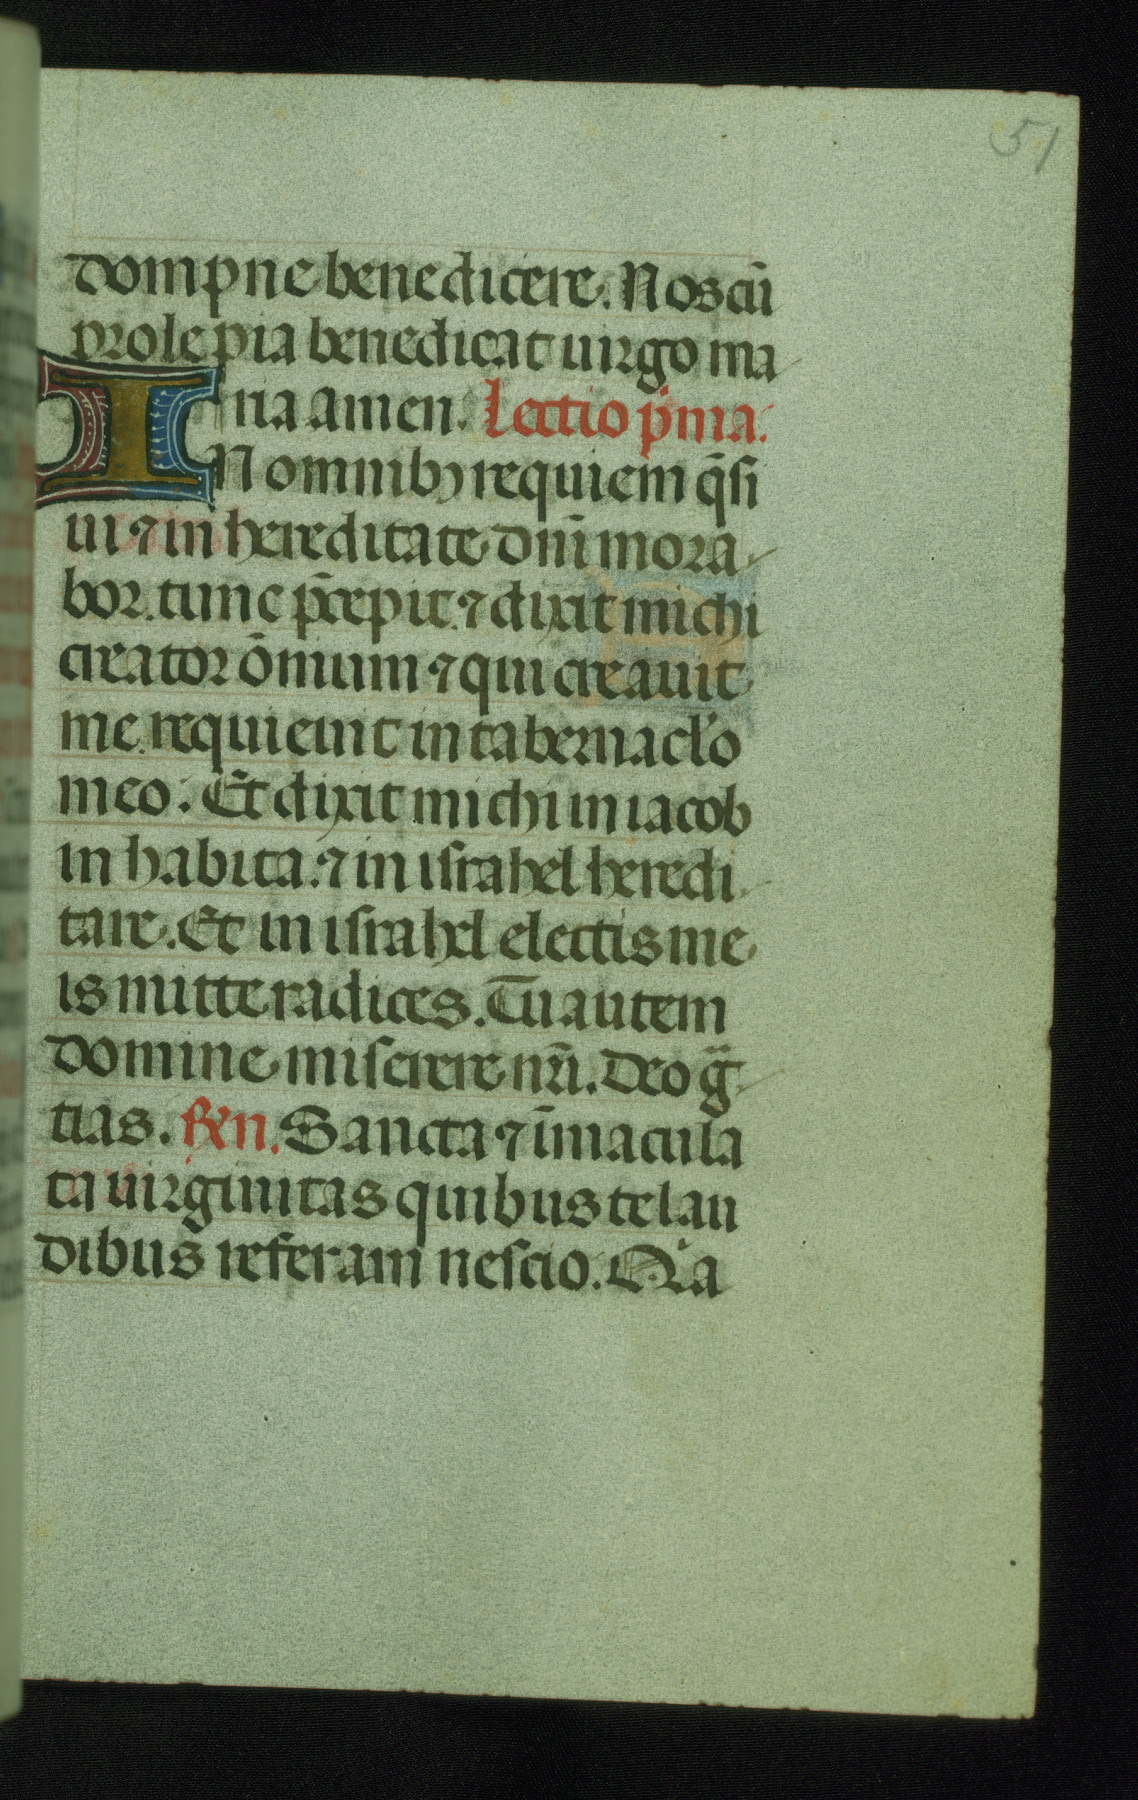 51
dompne benedicere. Nos cū
prole pia benedicat uirgo ma
ria amen. Lectio p̄ma.
IN omnibꝫ requiem q̄si
ui ⁊ in hereditate dn̄i mora
bor. tunc p̄cepit. ⁊ dixit michi
creator ōmnium ⁊ qui creauit
me. requieuit in tabernacl̓o
meo. Et dixit michi in iacob
in habita. ⁊ in israhel heredi
tare. Et in israhel electis me
is mitte radices. Tu autem
domine miserere nr̄i. Deo g̃
tias. Rx̄n. Sancta ⁊ īmacula
ta uirginitas quibus te lau
dibus referam nescio. Q̓a